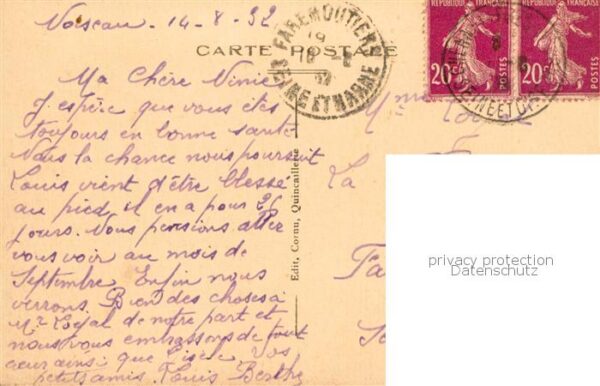 14-8-32
CARTE POSTALE
FAREMOUTIERS
SEINE ET MARNE
RÉPUBLIQUE FRANÇAISE
20c
POSTES
RÉPUBLIQUE FRANÇAISE
20c
POSTES
Ma Chère Ninie
J'espère que vous êtes
toujours en bonne santé
Nous la chance nous poursuit
Louis vient d'être blessé
au pied il en a pour 26
jours. Nous pensions aller
vous voir au mois de
Septembre. Enfin nous
verrons. Bien des choses à
Mr Loyal de notre part et
nous vous embrassons de tout
cœur ainsi que Gisèle. Vos
petits amis. Louis Berthe
Edit. Cornu, Quincaillerie
Mme
La
privacy protection
Datenschutz